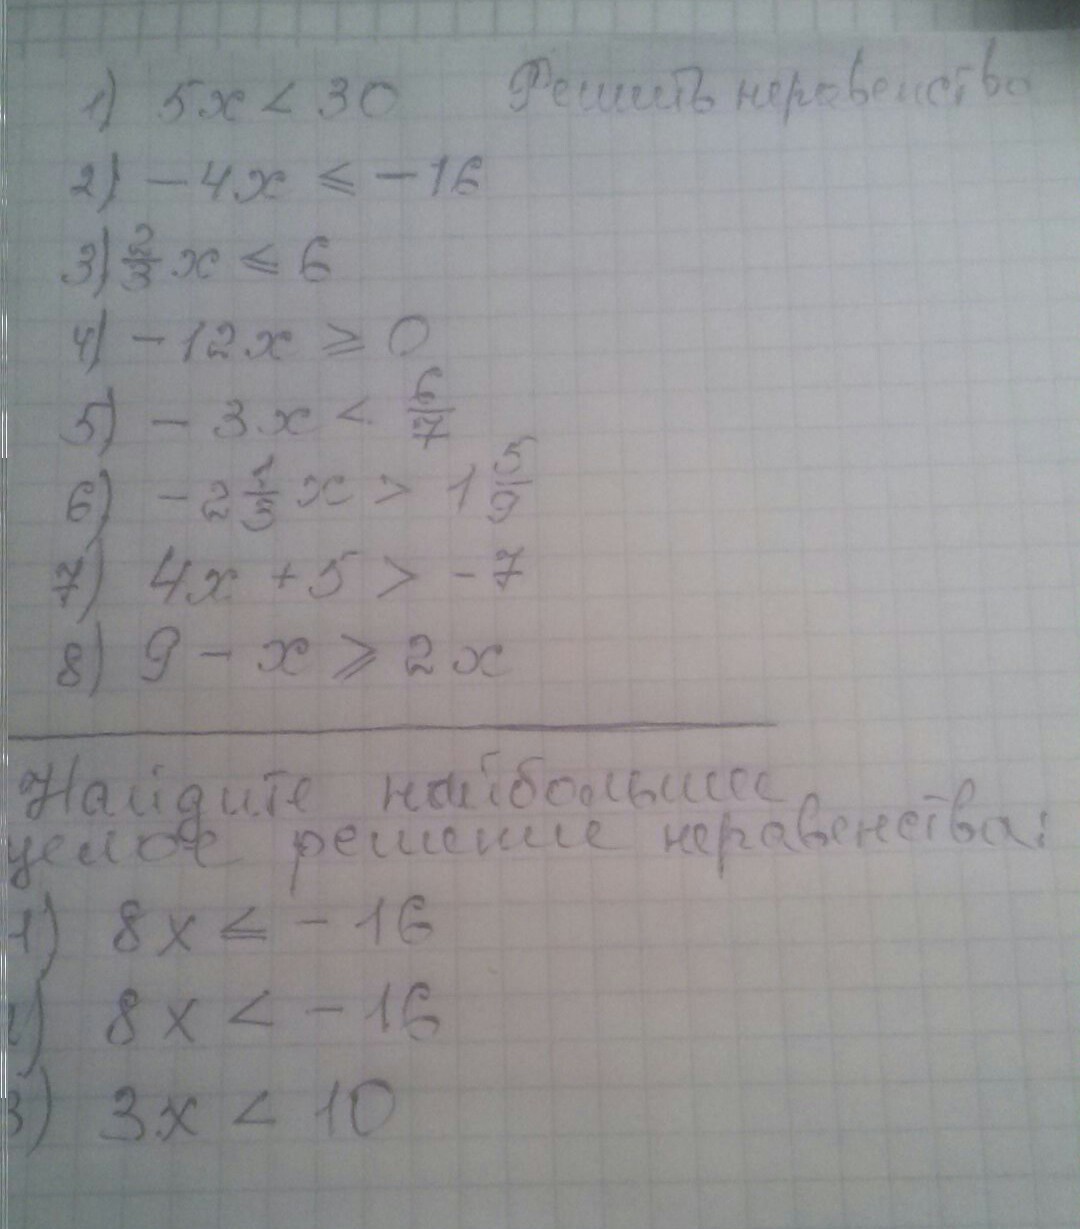 1) 5x < 30 Решить неравенства
2) - 4x ⩽ - 16
3) 2/3 x ⩽ 6
4) - 12x ⩾ 0
5) - 3x < 6/7
6) - 2 1/3 x > 1 5/9
7) 4x + 5 > - 7
8) 9 - x ⩾ 2x
Найдите наибольшее
целое решение неравенства:
1) 8x ⩽ - 16
2) 8x < - 16
3) 3x < 10